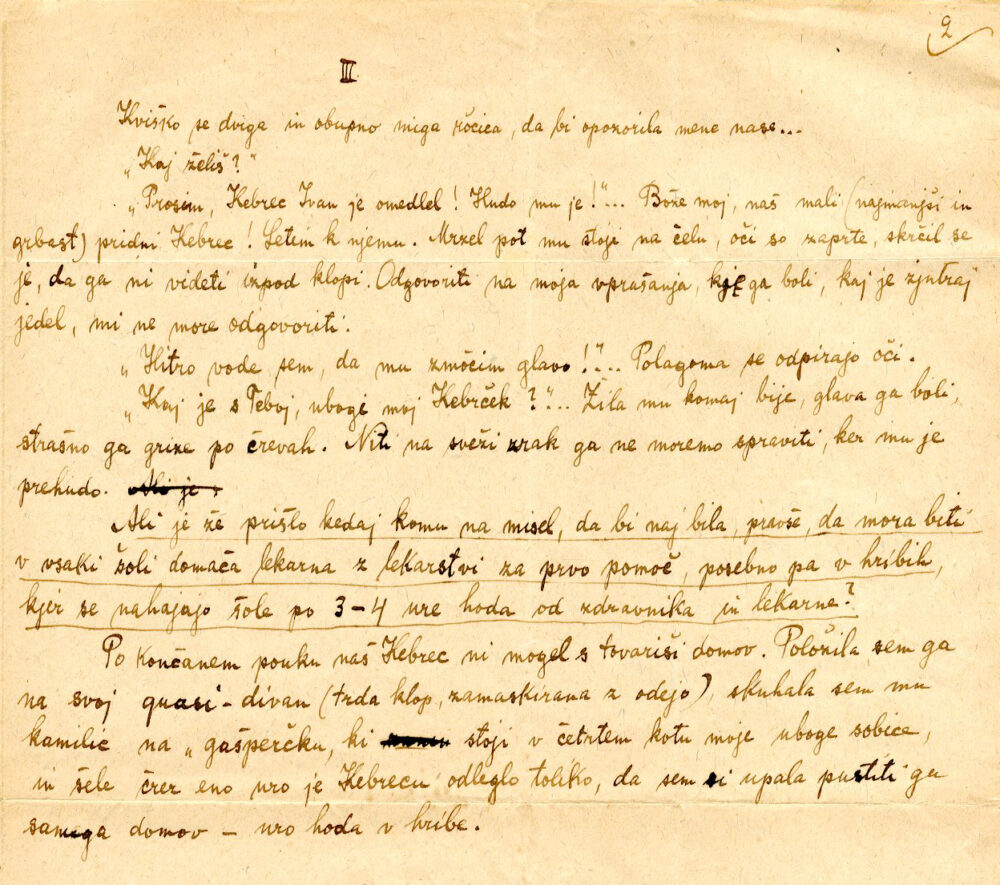 2
III
Kviško se dviga in obupno miga ročica, da bi opozorila mene nase...
„Kaj želiš?"
„Prosim, Kebrec Ivan je omedlel! Hudo mu je!"... Bože moj, naš mali (najmanjši in
grbast) pridni Kebrec! Letim k njemu. Mrzel pot mu stoji na čelu, oči so zaprte, skrčil se
je, da ga ni videti izpod klopi. Odgovoriti na moja vprašanja, kje ga boli, kaj je zjutraj
jedel, mi ne more odgovoriti.
„Hitro vode, sem, da mu zmočim glavo!"... Polagoma se odpirajo oči.
„Kaj je s Teboj, ubogi moj Kebrček?"... Žila mu komaj bije, glava ga boli,
strašno ga grize po črevah. Niti na sveži zrak ga ne moremo spraviti, ker mu je
prehudo. Ali je :
Ali je že prišlo kedaj komu na misel, da bi naj bila, pravše, da mora biti
v vsaki šoli domača lekarna z lekarstvi za prvo pomoč, posebno pa v hribih,
kjer se nahajajo šole po 3-4 ure hoda od zdravnika in lekarne?
Po končanem pouku naš Kebrec ni mogel s tovariši domov. Položila sem ga
na svoj quasi-divan (trda klop, zamaskirana z odejo), skuhala sem mu
kamilic na „gašperčku, ki stoji v četrtem kotu moje uboge sobice,
in šele črez eno uro je Kebrecu odleglo toliko, da sem si upala pustiti ga
samega domov – uro hoda v hribe.